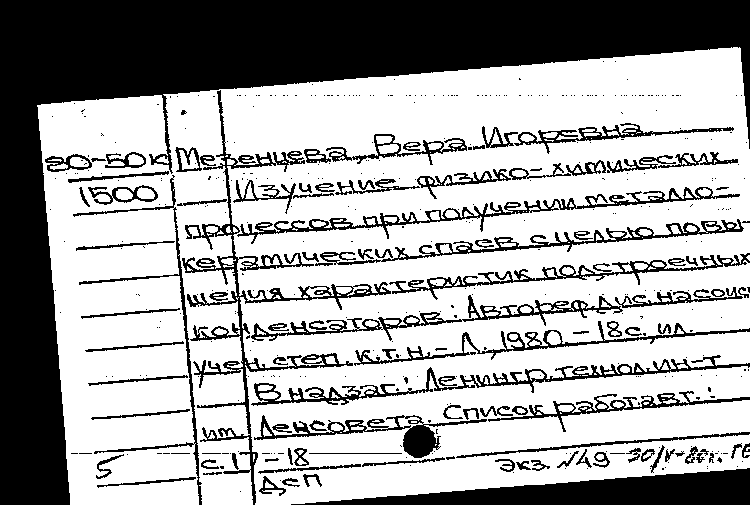 80-50к Мезенцева, Вера Игоревна
1500 Изучение физико-химических
процессов при получении металло-
керамических спаев с целью повы-
шения характеристик подстроечных
конденсаторов: Автореф.дис.на соиск
учен. степ. к.т.н. - Л., 1980. - 18с., ил.
В надзаг.: Ленингр.технол.ин-т
им. Ленсовета. Список работ авт.:
5 с.17-18
Экз. №49 30/V-80г.
ДСП